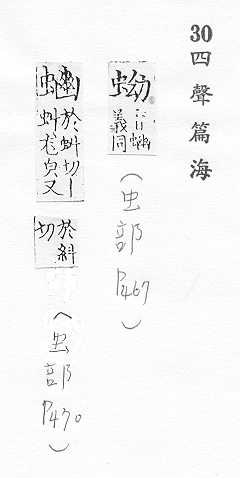 30四聲篇海
蚴
音
義同
(虫部
P467)
於蚪切丨
蚪皃又
於糾
切
(虫部
P470)